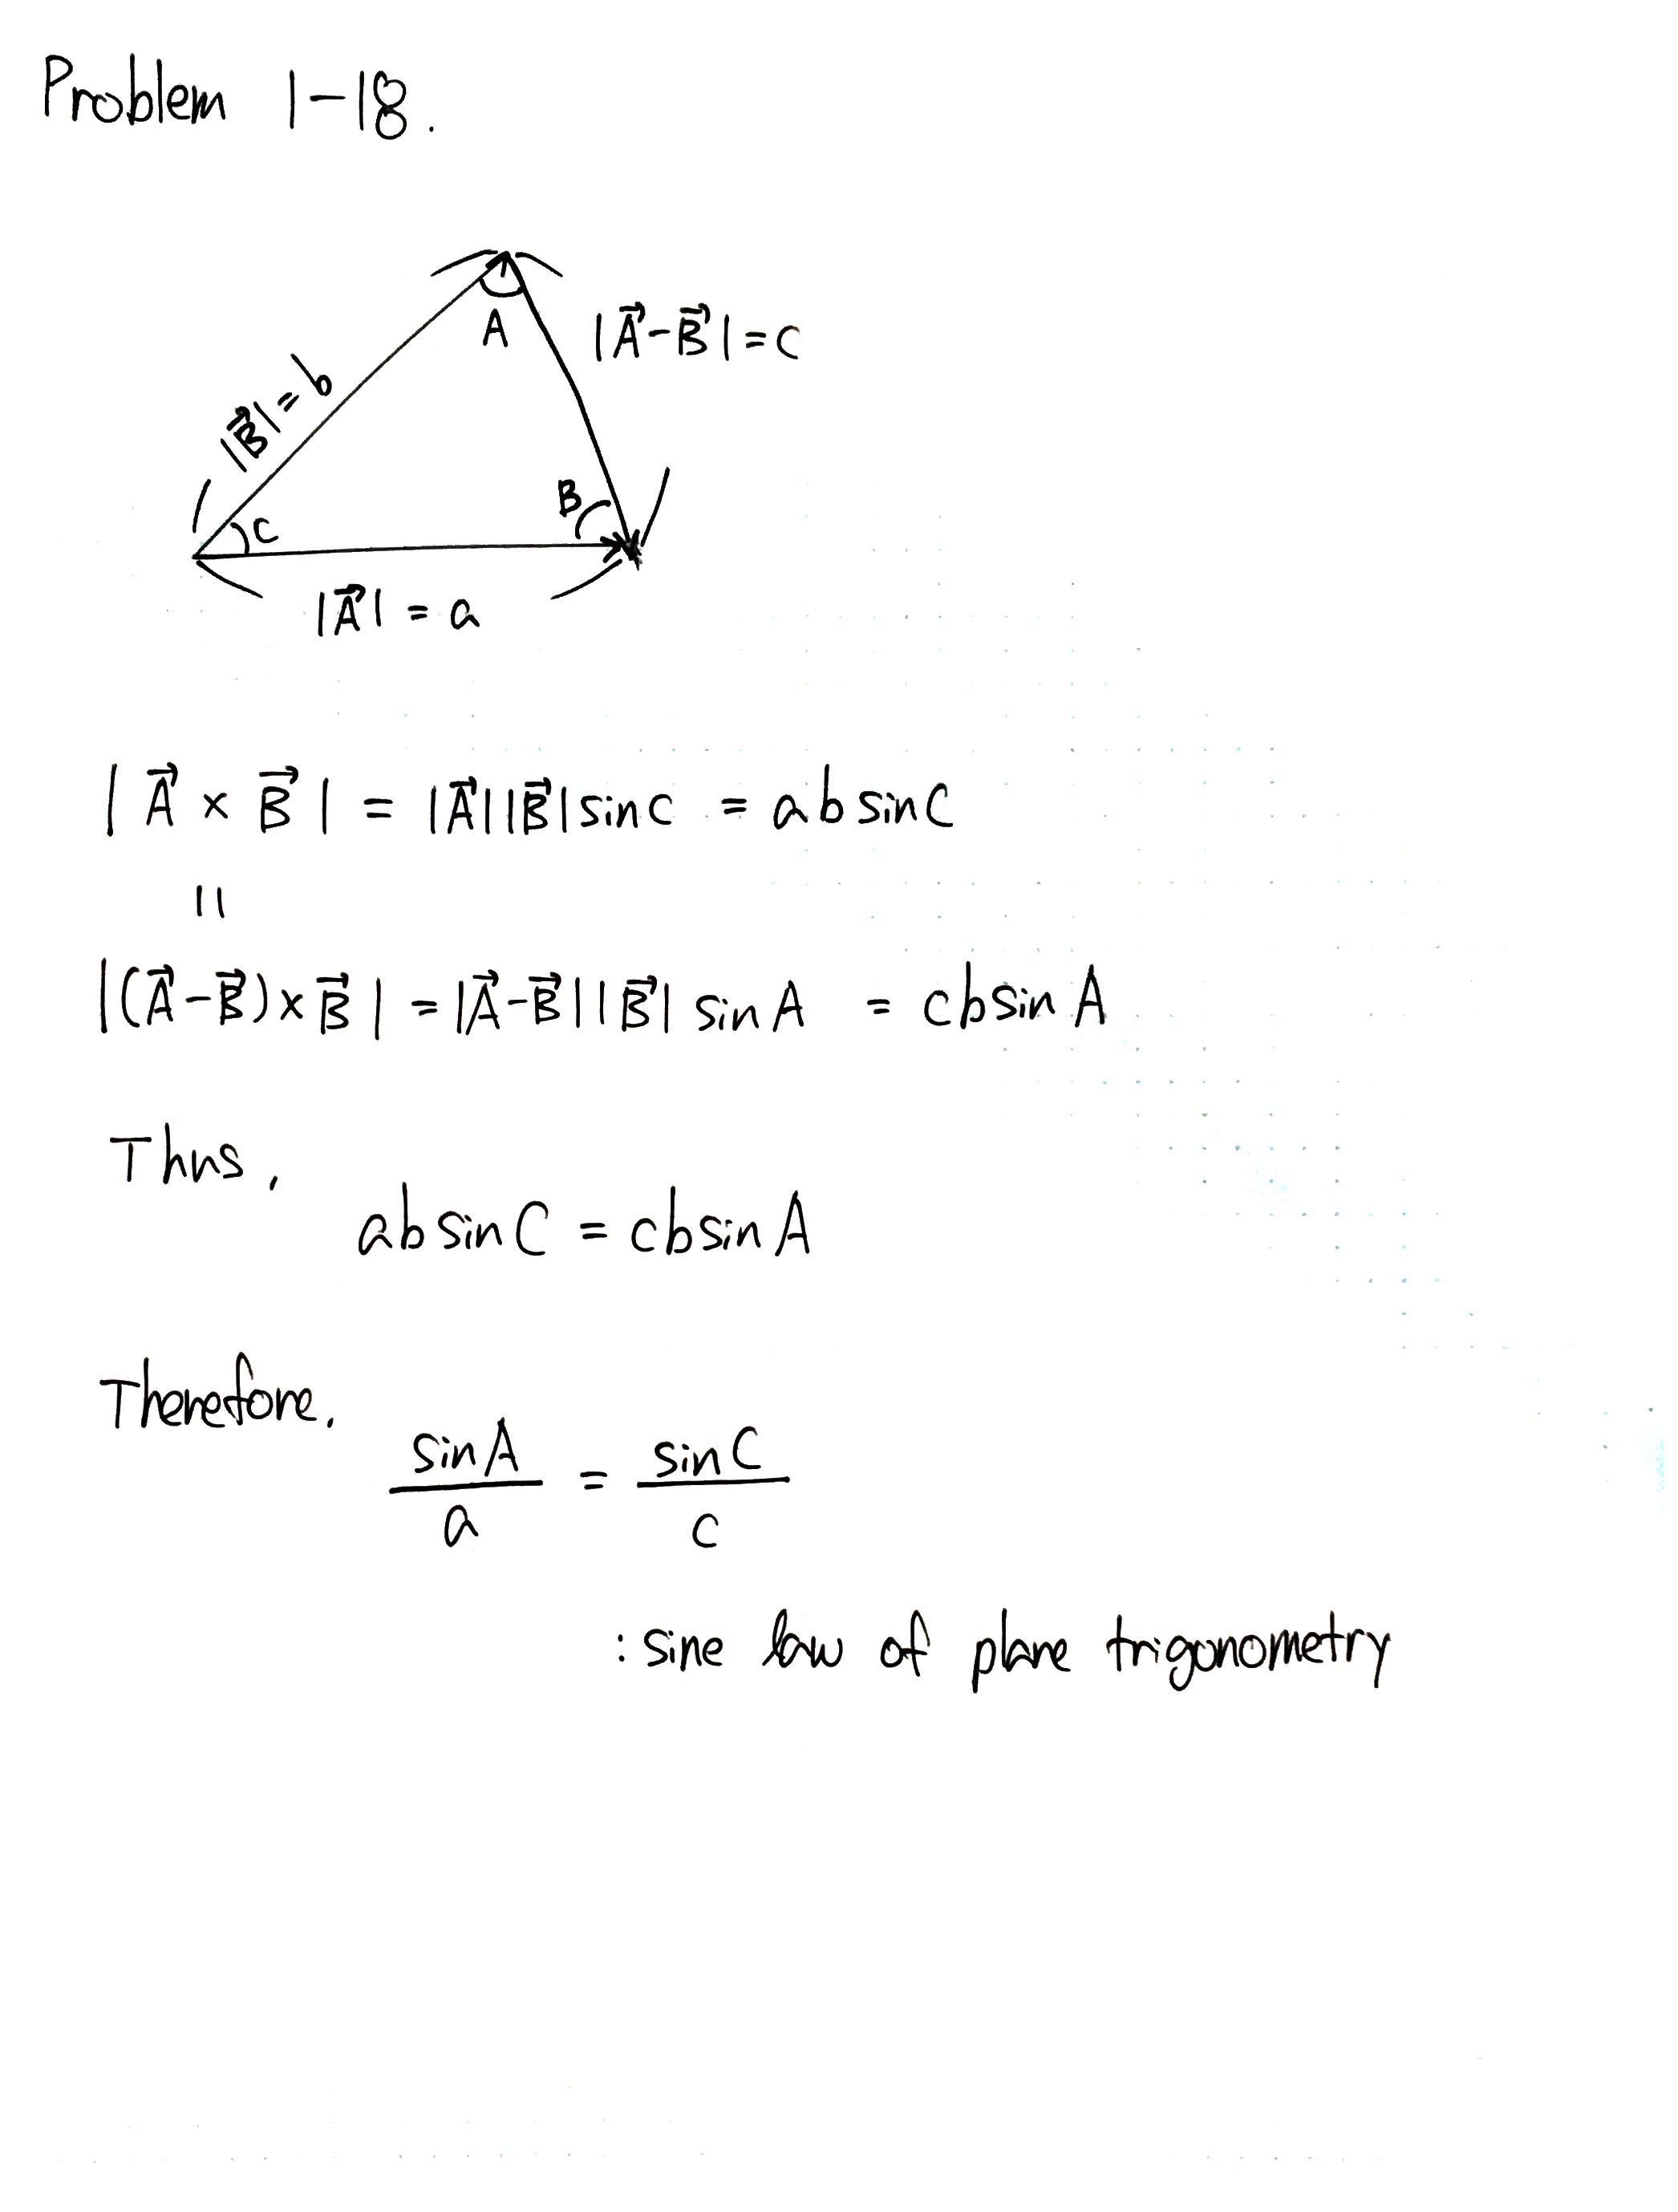 Problem 1-18.
A
|A⃗-B⃗|=c
|B⃗|=b
B
C
|A⃗| = a
|A⃗ × B⃗| = |A⃗||B⃗|sinC = absinC
||
|(A⃗-B⃗)×B⃗| = |A⃗-B⃗||B⃗| sinA = cbsinA
Thus,
absinC = cbsinA
Therefore,
sinA / a = sinC / c
: sine law of plane trigonometry